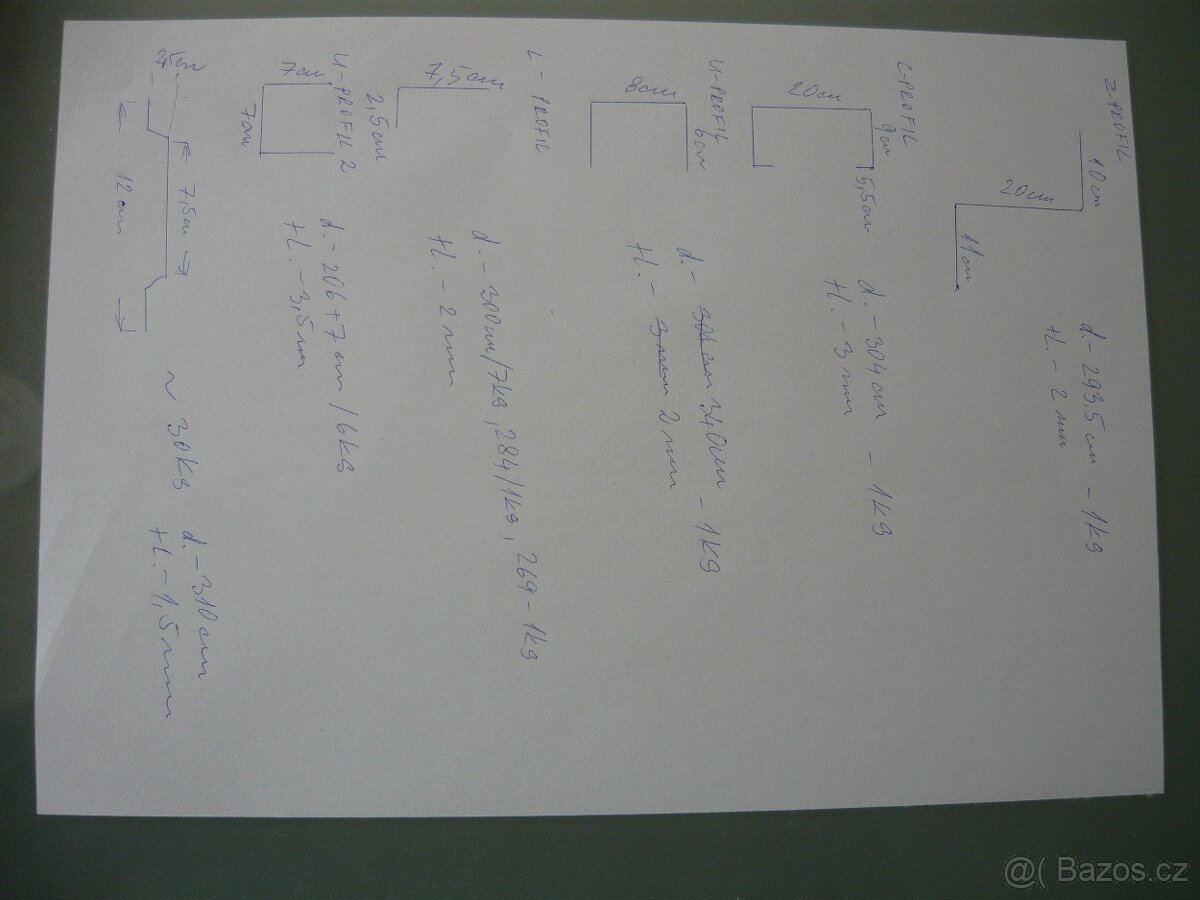 Z-PROFIL
10cm
20cm
11cm
d.-293,5cm - 1kg
tl. - 2mm
C-PROFIL
20cm
9cm
5,5cm
d. - 304cm - 1kg
tl. - 3mm
U-PROFIL
8cm
6cm
d. - 304cm 340cm - 1kg
tl. - 3mm 2mm
L - PROFIL
7,5cm
2,5cm
d. - 300cm/7kg, 284/1kg, 269-1kg
tl. - 2mm
U-PROFIL 2
7cm
7cm
d. - 206+7cm / 6kg
tl. - 3,5mm
7,5cm
12cm
~ 30kg
d. - 310cm
tl. - 1,5mm
@( Bazos.cz